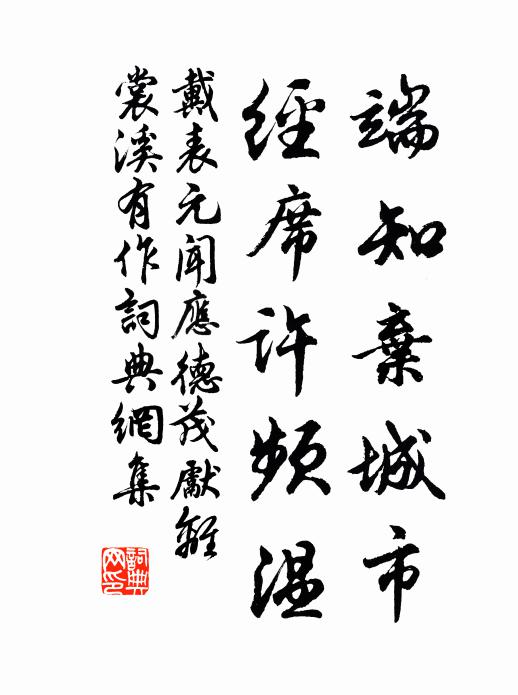 端知棄城市
經席許頻温
戴表元聞應德茂獻離
裳溪有作詞典網集
詞典网印